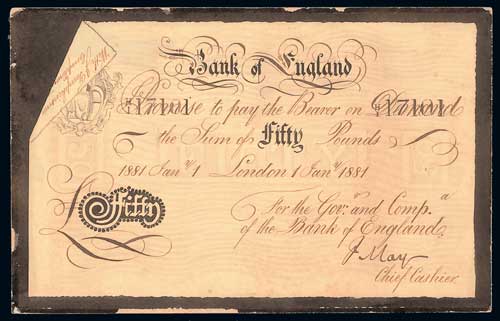 Bank of England
Promise to pay the Bearer on Demand
the Sum of Fifty Pounds
1881 Jan.y 1 London 1 Jan.y 1881
For the Gov.r and Comp.a
of the Bank of England
Fifty
F May
Chief Cashier